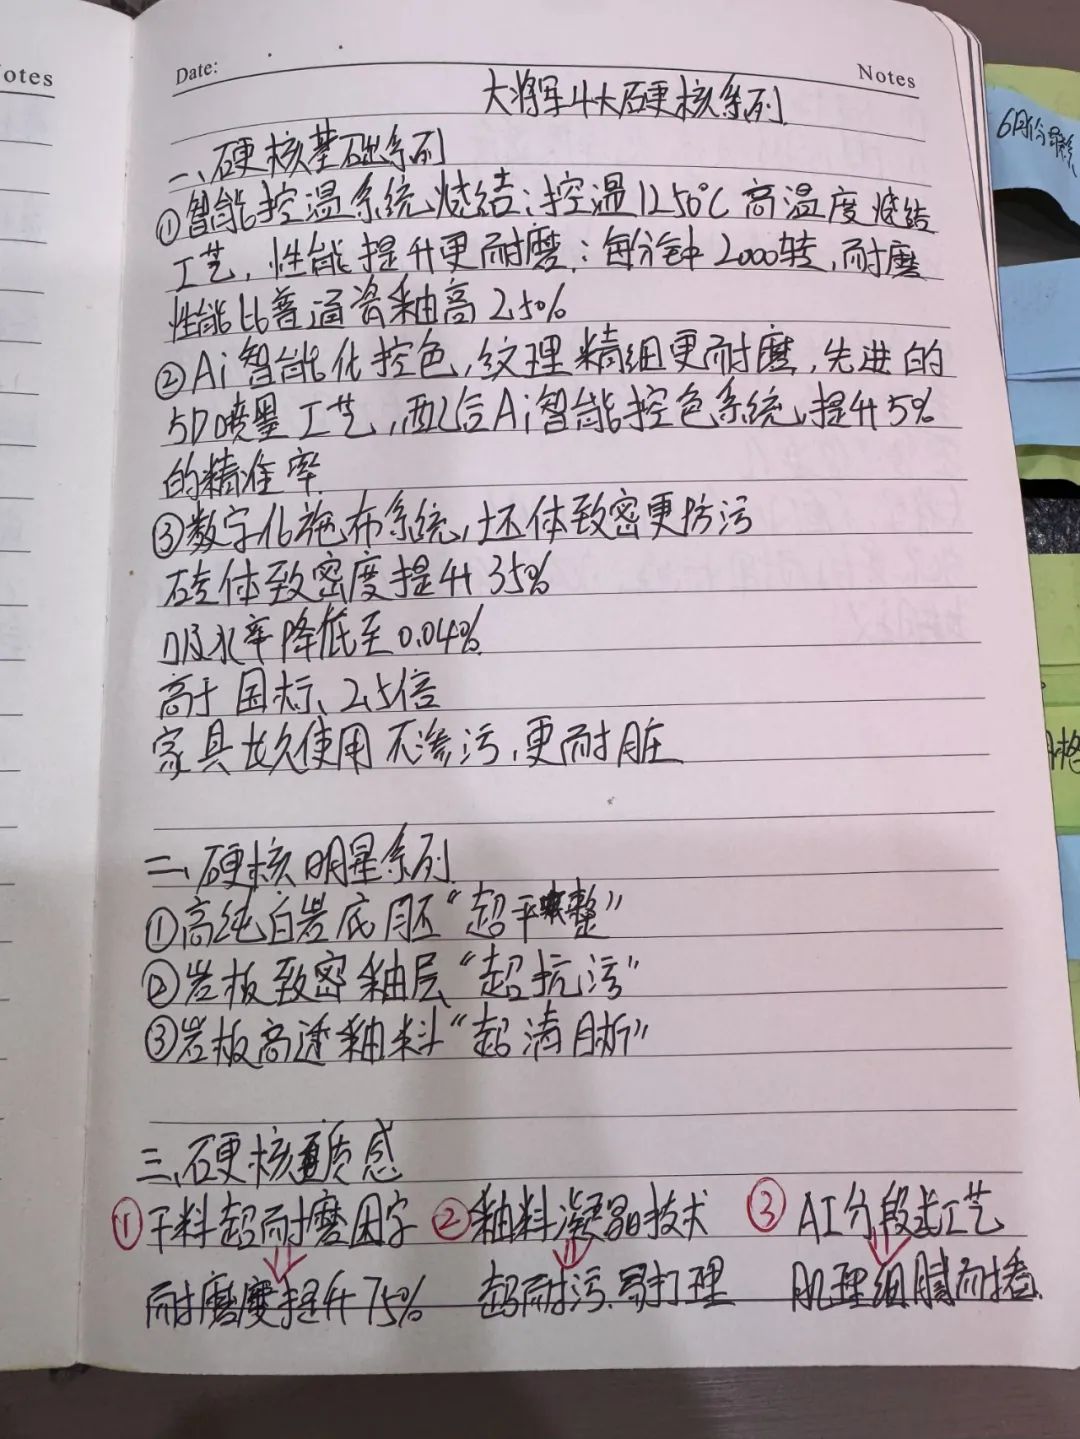 otes
Date:
Notes
大将军4大硬核系列
一、硬核基础系列
①智能控温系统烧结:控温1250℃高温度烧结
工艺,性能提升更耐磨:每分钟2000转,耐磨
性能比普通瓷釉高25%
②Ai智能化控色,纹理精细更耐磨,先进的
5D喷墨工艺,配合Ai智能控色系统,提升5%
的精准率
③数字化施布系统,坯体致密更防污
砖体致密度提升35%
吸水率降低至0.04%
高于国标、2.5倍
家具长久使用不渗污,更耐脏
二、硬核明星系列
①高纯白岩底胚“超平整”
②岩板致密釉层“超抗污”
③岩板高透釉料“超清晰”
三、硬核质感
①干料超耐磨因字 ②釉料凝晶技术 ③AI分段式工艺
耐磨度提升75% 超耐污、易打理 肌理细腻耐看
6月份